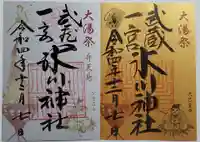 大湯祭
武蔵
一宮
氷川神社
令和四年十二月七日
大湯祭
武蔵
一宮
氷川神社
令和四年十二月七日